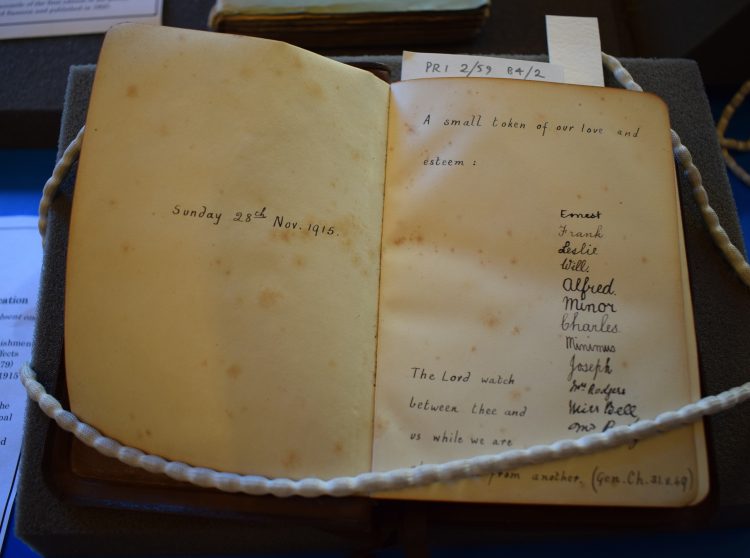 Sunday 28th Nov. 1915.
PR1 2/59 B4/2
A small token of our love and
esteem :
Ernest
Frank
Leslie
Will.
Alfred.
Minor
Charles.
Minimus
Joseph
Mrs Rodgers
Miss Bell
The Lord watch
between thee and
us while we are
from another. (Gen. Ch. 31.v.49)
cation
1915'
the
and